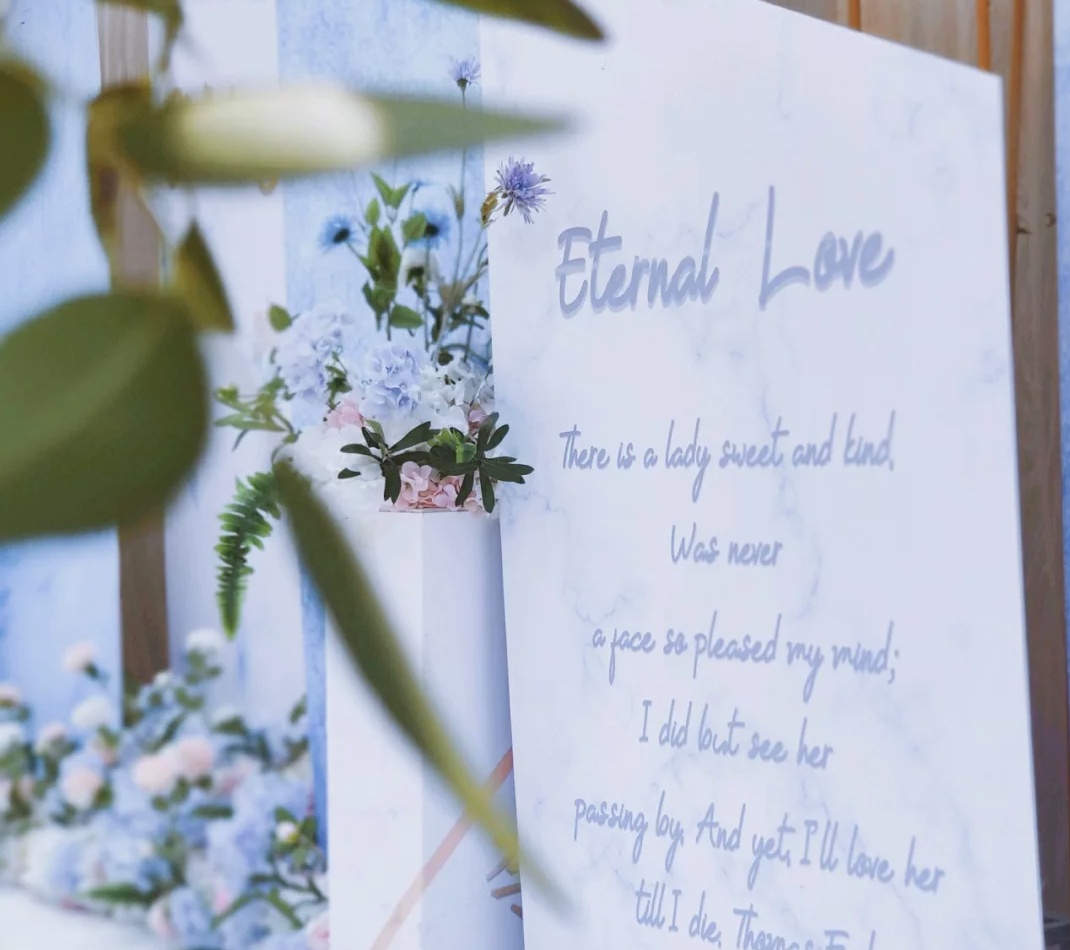 Eternal Love
There is a lady sweet and kind,
Was never
a face so pleased my mind;
I did but see her
passing by, And yet, I'll love her
till I die,